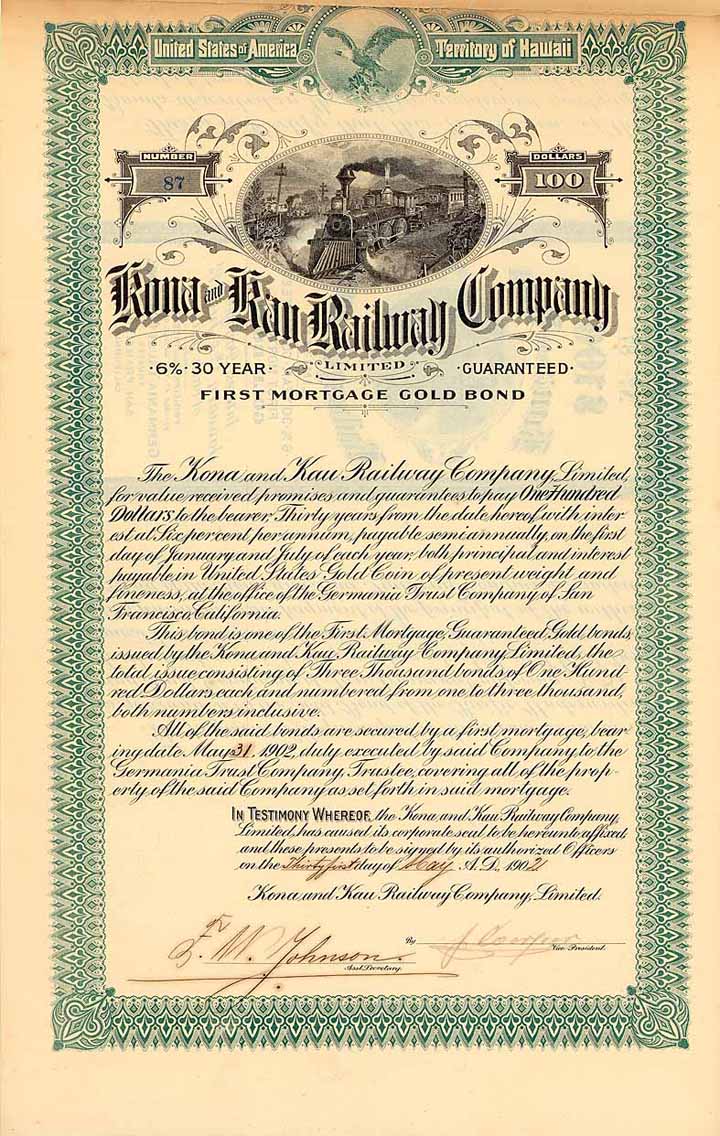 United States of America
Territory of Hawaii
NUMBER
87
DOLLARS
100
Kona and Kau Railway Company
LIMITED
·6%·30 YEAR· ·GUARANTEED·
FIRST MORTGAGE GOLD BOND
The Kona and Kau Railway Company, Limited,
for value received promises and guarantees to pay One Hundred
Dollars to the bearer, Thirty years from the date hereof, with inter
est at Six per cent per annum, payable semi annually, on the first
day of January and July of each year, both principal and interest
payable in United States Gold Coin of present weight and
fineness, at the office of the Germania Trust Company of San
Francisco, California.
This bond is one of the First Mortgage, Guaranteed, Gold bonds
issued by the Kona and Kau Railway Company, Limited, the
total issue consisting of Three Thousand bonds of One Hund-
red Dollars each and numbered from one to three thousand,
both numbers inclusive.
All of the said bonds are secured by a first mortgage, bear
ing date May 31 1902, duly executed by said Company to the
Germania Trust Company, Trustee, covering all of the prop-
erty of the said Company as set forth in said mortgage.
IN TESTIMONY WHEREOF, the Kona and Kau Railway Company,
Limited, has caused its corporate seal to be hereunto affixed
and these presents to be signed by its authorized Officers
on the Thirty first day of May A.D. 1902
Kona and Kau Railway Company, Limited.
F. W. Johnson
Asst Secretary.
By
Vice President.